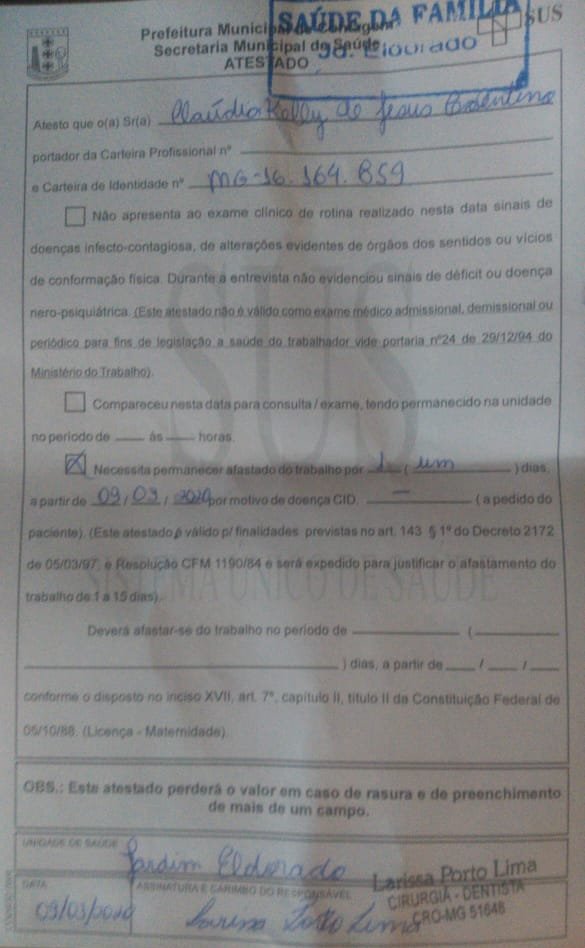 SAÚDE DA FAMÍLIA
Jd. Eldorado
SUS
Prefeitura Municipal de Contagem
Secretaria Municipal de Saúde
ATESTADO
Atesto que o(a) Sr(a) Claúdia Kelly de Jesus
portador da Carteira Profissional nº
e Carteira de Identidade nº MG-16.164.859
Não apresenta ao exame clínico de rotina realizado nesta data sinais de
doenças infecto-contagiosa, de alterações evidentes de órgãos dos sentidos ou vícios
de conformação física. Durante a entrevista não evidenciou sinais de déficit ou doença
nero-psiquiátrica. (Este atestado não é válido como exame médico admissional, demissional ou
periódico para fins de legislação a saúde do trabalhador vide portaria nº24 de 29/12/94 do
Ministério do Trabalho).
Compareceu nesta data para consulta / exame, tendo permanecido na unidade
no período de ____ às ____ horas.
X Necessita permanecer afastado do trabalho por 1 ( um ) dias,
a partir de 09 / 03 / 2020 por motivo de doença CID. — ( a pedido do
paciente). (Este atestado é válido p/ finalidades previstas no art. 143 § 1º do Decreto 2172
de 05/03/97, e Resolução CFM 1190/84 e será expedido para justificar o afastamento do
trabalho de 1 a 15 dias).
Deverá afastar-se do trabalho no período de ________ (________
________) dias, a partir de ____/____/____
conforme o disposto no inciso XVII, art. 7º, capítulo II, título II da Constituição Federal de
05/10/88. (Licença - Maternidade).
SUS
SISTEMA ÚNICO DE SAÚDE
OBS.: Este atestado perderá o valor em caso de rasura e de preenchimento
de mais de um campo.
UNIDADE DE SAÚDE
Jardim Eldorado
DATA
09/03/2020
ASSINATURA E CARIMBO DO RESPONSÁVEL
Larissa Porto Lima
Larissa Porto Lima
CIRURGIÃ - DENTISTA
CRO-MG 51648